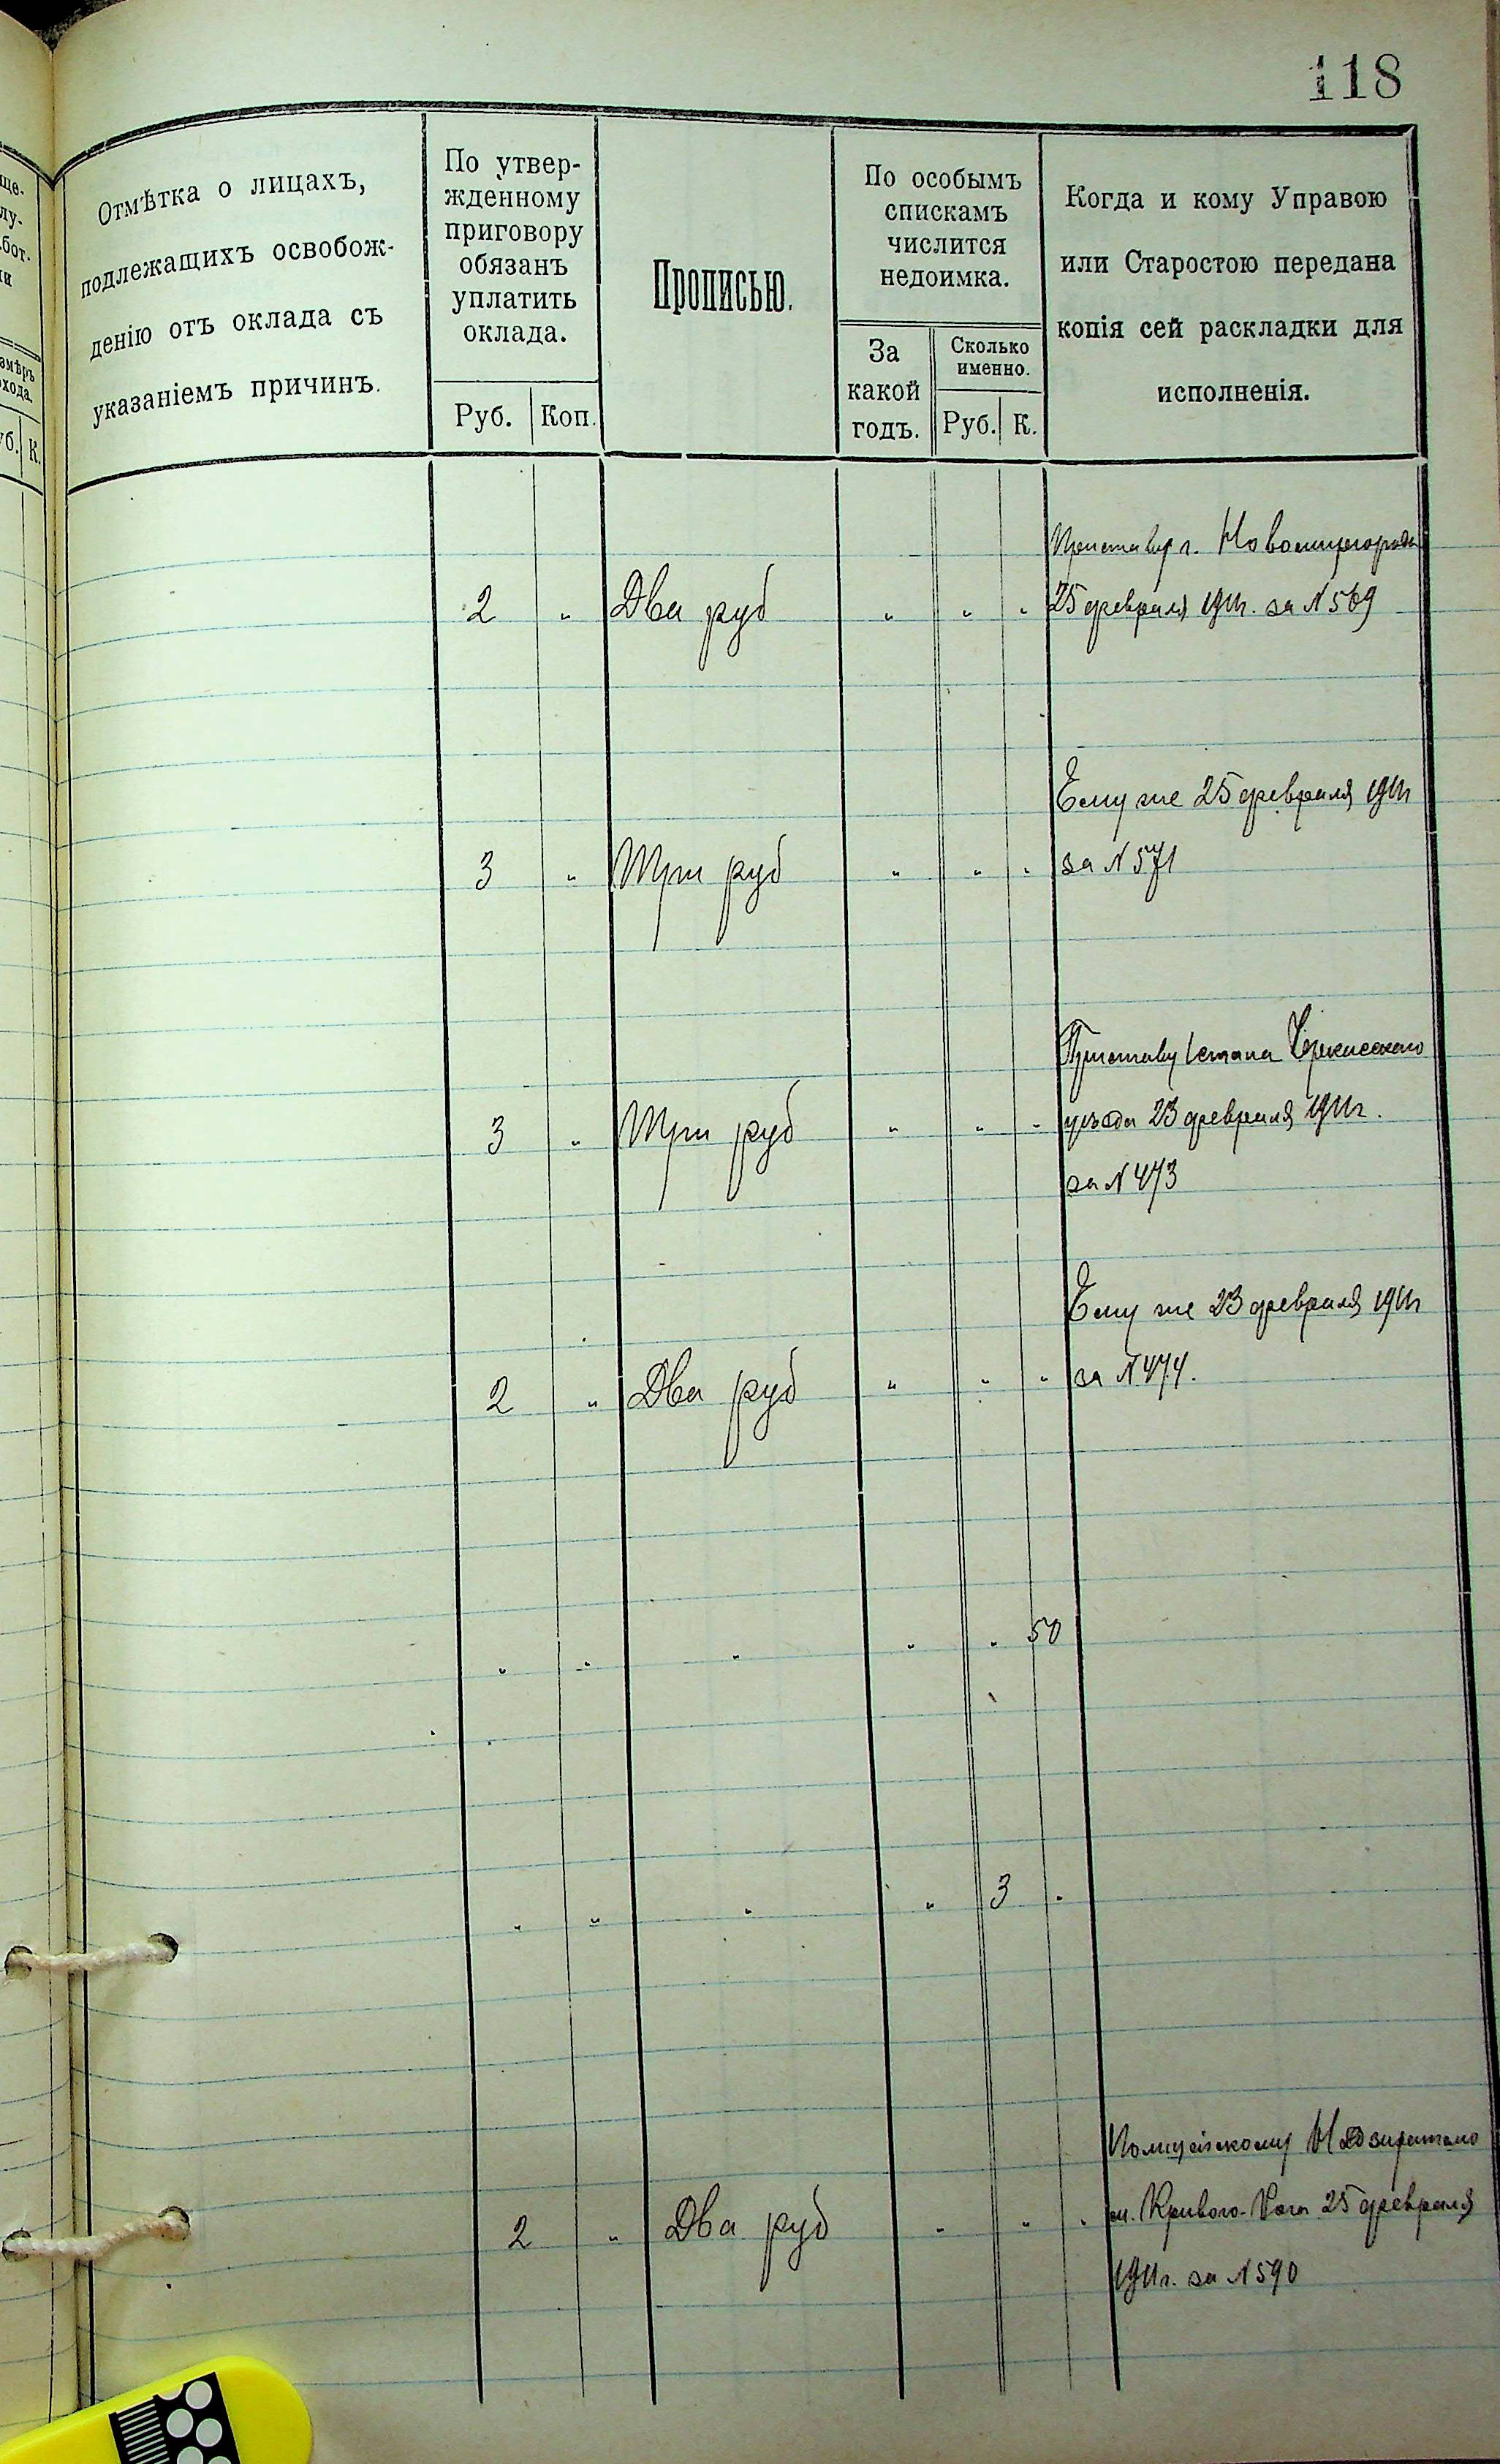 118
Отмѣтка о лицахъ,
подлежащихъ освобож-
денію отъ оклада съ
указаніемъ причинъ.
По утвер-
жденному
приговору
обязанъ
уплатить
оклада.
Руб. Коп.
Прописью.
По особымъ
спискамъ
числится
недоимка.
За
какой
годъ.
Сколько
именно.
Руб. К.
Когда и кому Управою
или Старостою передана
копія сей раскладки для
исполненія.
Приставу г. Новомиргорода
2 " Два руб " " " 25 февраля 1911г. за N 569
Ему же 25 февраля 1911г
3 " Три руб " " " за N 571
Приставу 1 стана Черкасскаго
3 " Три руб " " " уѣзда 23 февраля 1911г.
за N 473
Ему же 23 февраля 1911г
2 " Два руб " " " за N 474.
" " " " " 50
" " " " 3 "
Полицейскому Надзирателю
2 " Два руб " " " м. Кривого-Рога 25 февраля
1911г. за N 590